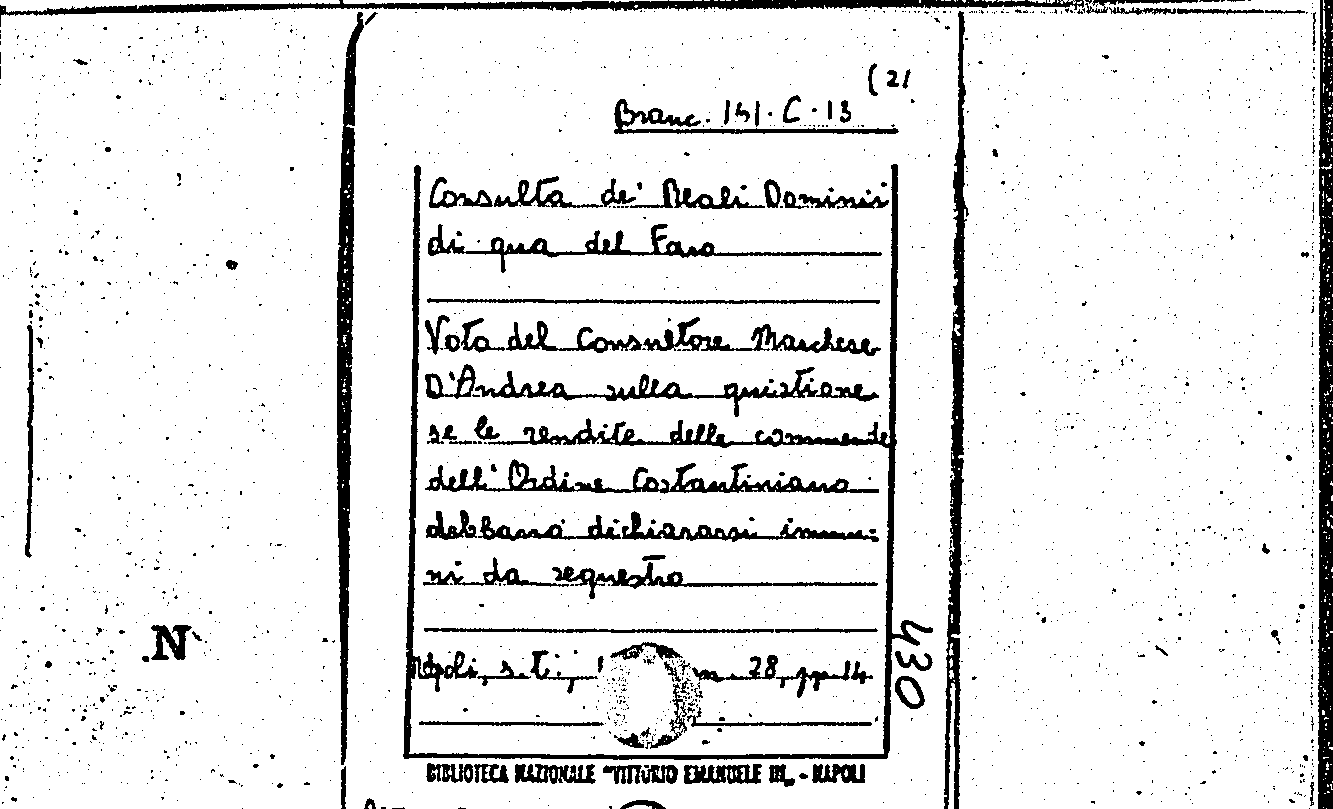 (21
Branc. 141. C. 13
Consulta de' Reali Dominii
di qua del Faro
Voto del Consultore Marchese
D'Andrea sulla quistione
se le rendite delle commende
dell'Ordine Costantiniano
debbano dichiararsi immu=
ni da sequestro
Napoli, s.t., 28, pp. 14
430
N
BIBLIOTECA NAZIONALE "VITTORIO EMANUELE III" - NAPOLI